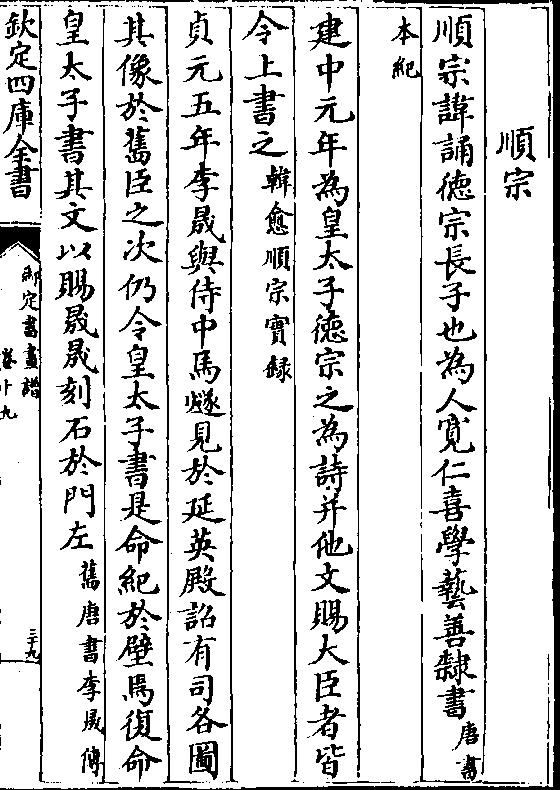 順宗
順宗諱誦德宗長子也為人寛仁喜學藝善隸書唐書
本紀
建中元年為皇太子德宗之為詩并他文賜大臣者皆
令上書之韓愈順宗實錄
貞元五年李晟與侍中馬燧見於延英殿詔有司各圖
其像於舊臣之次仍令皇太子書是命紀於壁焉復命
皇太子書其文以賜晟晟刻石於門左舊唐書李晟傳
欽定四庫全書
御定書畫譜
卷十九
三十九